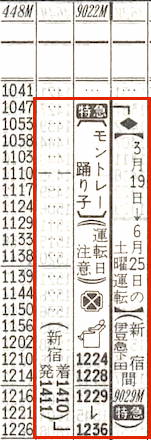 448M 9022M
1041
1047
1053
1058
1103
1110
1117
1124
1129
1133
1138
1139
1144
1150
1156
1202
1210
1216
1221
1226
特急
◆3月19日→6月25日の
土曜運転
新宿間
9029M
特急
モントレー
踊り子
(運転日
注意)
1224
1228
1229
↓
1236
(新宿着1410
発1411)